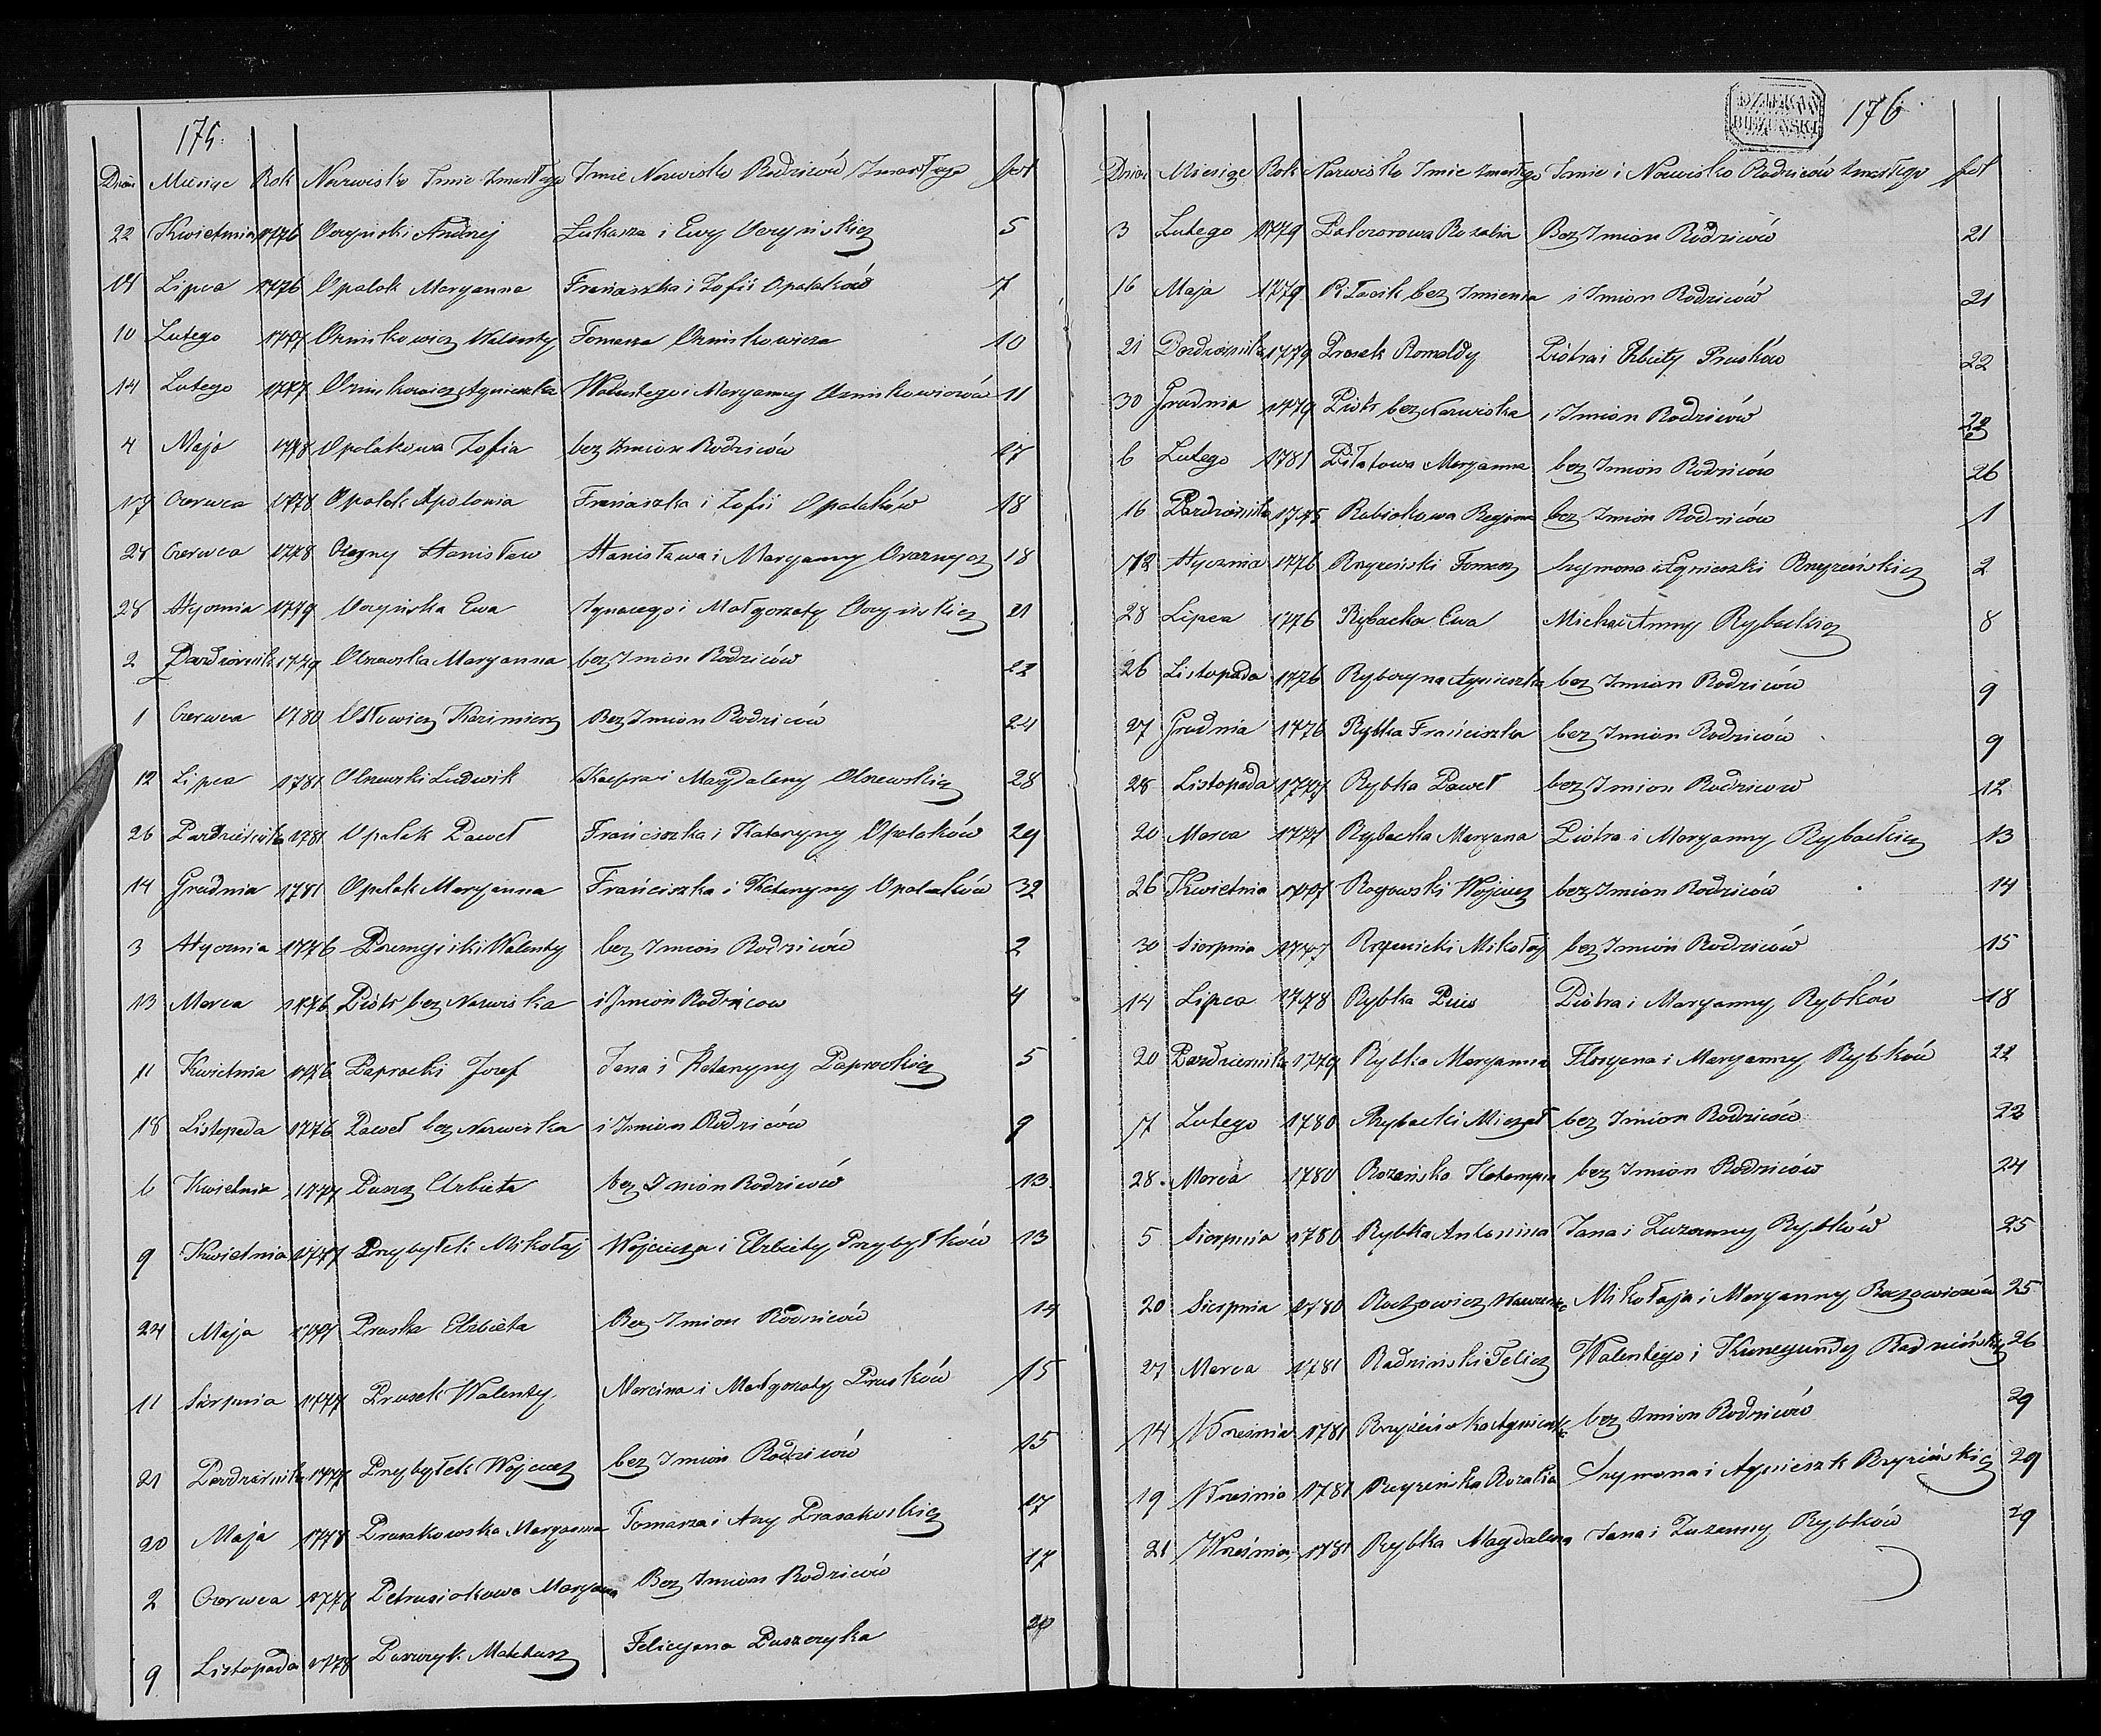 175.
Dzień Miesiąc Rok Nazwisko Imie Zmarłego Imie Nazwisko Rodziców Zmarłego fol
22 Kwietnia 1776 Oczyński Andrzej Łukasza i Ewy Oczyńskich 5
14 Lipca 1776 Opalok Maryanna Franciszka i Zofii Opalaków 7
10 Lutego 1777 Ozmikowicz Walenty Tomasza Ozmikowicza 10
14 Lutego 1777 Ozmikowicz Agnieszka Walentego i Maryanny Ozmikowiczów 11
4 Maja 1778 Opalakowa Zofia bez Imion Rodziców 17
17 Czerwca 1778 Opalak Apolonia Franciszka i Zofii Opalaków 18
28 Czerwca 1778 Stanisław Stanisława i Maryanny 18
28 Stycznia 1779 Oczyńska Ewa Ignacego i Małgorzaty Oczyńskich 21
2 Pazdziernik 1779 Olszewska Maryanna bez Imion Rodziców 22
1 Czerwca 1780 Osłowicz Kazimierz Bez Imion Rodziców 24
12 Lipca 1781 Olszewski Ludwik Kacpra i Magdaleny Olszewskich 28
26 Pazdziernika 1781 Opalak Paweł Franciszka i Katarzyny Opalaków 29
14 Grudnia 1781 Opalak Maryanna Franciszka i Katarzyny Opalaków 32
3 Stycznia 1776 Walenty bez Imion Rodziców 2
13 Marca 1776 Piotr bez Nazwiska i Imion Rodziców 4
11 Kwietnia 1776 Paprocki Jozef Jana i Katarzyny Paprockich 5
18 Listopada 1776 Paweł bez Nazwiska i Imion Rodziców 9
6 Kwietnia 1777 Elzbieta bez Imion Rodziców 13
9 Kwietnia 1777 Przybyłek Mikołaj Wojciecha i Elzbiety Przybyłków 13
24 Maja 1777 Pruska Elzbieta Bez Imion Rodziców 14
11 Sierpnia 1777 Prusek Walenty Marcina i Małgorzaty Prusków 15
21 Pazdziernika 1777 Przybyłek Wojciech bez Imion Rodziców 15
20 Maja 1778 Prusakowska Maryanna Tomasza i Any Prusakoskich 17
2 Czerwca 1778 Petrusiakowa Maryana Bez Imion Rodziców 17
9 Listopada 1778 Paszczyk Mateusz Felicyana Paszczyka 20
DZIEKAN
BIEZUNSKI
176
Dzień Miesiąc Rok Nazwisko Imie zmarłego Imie i Nazwisko Rodziców zmarłego fol
3 Lutego 1779 Rozalia Bez Imion Rodziców 21
16 Maja 1779 bez Imienia i Imion Rodziców 21
21 Pazdziernika 1779 Prusek Romaldy Piotra i Elzbiety Prusków 22
30 Grudnia 1779 Piotr bez Nazwiska i Imion Rodziców 22
6 Lutego 1781 Piłatowa Maryanna bez Imion Rodziców 26
16 Pazdziernika 1775 Rabiakowa Regina bez Imion Rodziców 1
12 Stycznia 1776 Tomasz Szymona i Agnieszki 2
28 Lipca 1776 Rybacka Ewa Micha i Anny Rybackich 8
26 Listopada 1776 Ryboryna Agnieszka bez Imion Rodziców 9
27 Grudnia 1776 Rybka Franciszka bez Imion Rodziców 9
28 Listopada 1777 Rybka Paweł bez Imion Rodziców 12
20 Marca 1777 Rybacka Maryana Piotra i Maryanny Rybackich 13
26 Kwietnia 1777 Rogowski Wojciech bez Imion Rodziców 14
30 Sierpnia 1777 Mikołaj bez Imion Rodziców 15
14 Lipca 1778 Rybka Pius Piotra i Maryanny Rybków 18
20 Pazdziernika 1779 Rybka Maryanna Floryana i Maryanny Rybków 22
7 Lutego 1780 Rybacki Michał bez Imion Rodziców 22
28 Marca 1780 Rozańska Katarzyna bez Imion Rodziców 24
5 Sierpnia 1780 Rybka Antonina Jana i Zuzanny Rybków 25
20 Sierpnia 1780 Mikołaja i Maryanny 25
27 Marca 1781 Radziński Felix Walentego i Kunegundy Radzińskich 26
14 Wrzesnia 1781 bez Imion Rodziców 29
19 Wrzesnia 1781 Rozalia Szymona i Agnieszk 29
21 Wrześnie 1781 Rybka Magdalena Jana i Zuzanny Rybków 29